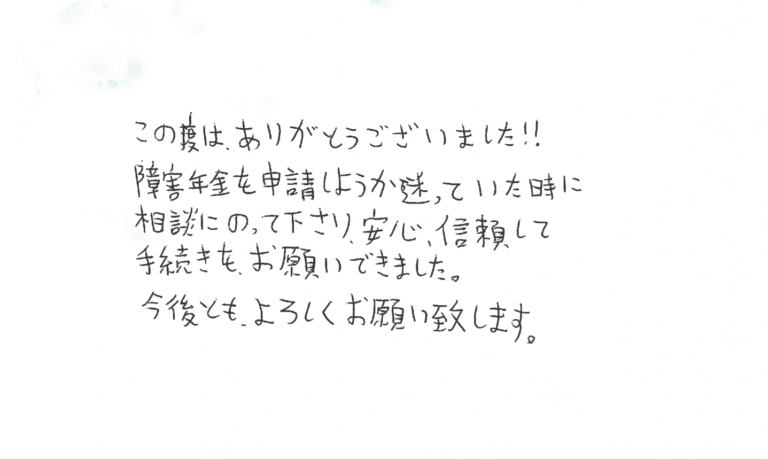 この度は、ありがとうございました!!
障害年金を申請しようか迷っていた時に
相談にのって下さり、安心、信頼して
手続きを、お願いできました。
今後とも、よろしくお願い致します。